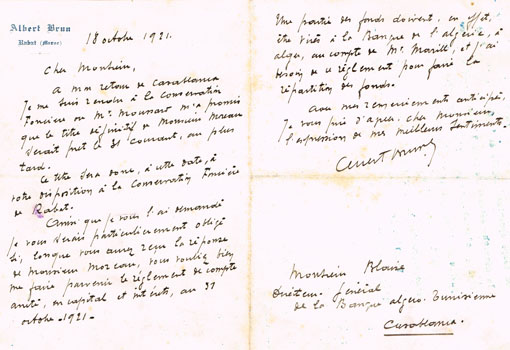 Albert Brun
Rabat (Maroc)
18 octobre 1921.
Cher Monsieur,
A mon retour de Casablanca
Je me suis rendu à la Conservation
Foncière où Mr Moussard m'a promis
que le titre définitif de Monsieur Moreau
serait prêt le 31 Courant, au plus
tard.
Ce titre sera donc, à cette date, à
votre disposition à la Conservation Foncière
de Rabat.
Ainsi que je vous l'ai demandé
Je vous serais particulièrement obligé
si, lorsque vous aurez reçu la réponse
de Monsieur Moreau, vous vouliez bien
me faire parvenir le règlement de compte
arrêté, en capital et intérêts, au 31
octobre 1921.
Une partie des fonds doivent, en effet,
être virés à la Banque de l'algérie, à
alger, au compte de Mr. et j'ai
besoin de ce règlement pour faire la
répartition des fonds.
Avec mes remerciements anticipés,
Je vous prie d'agréer, cher Monsieur,
l'expression de mes meilleurs sentiments.
Monsieur Blaise
Directeur Général
de la Banque algéro-Tunisienne
Casablanca.